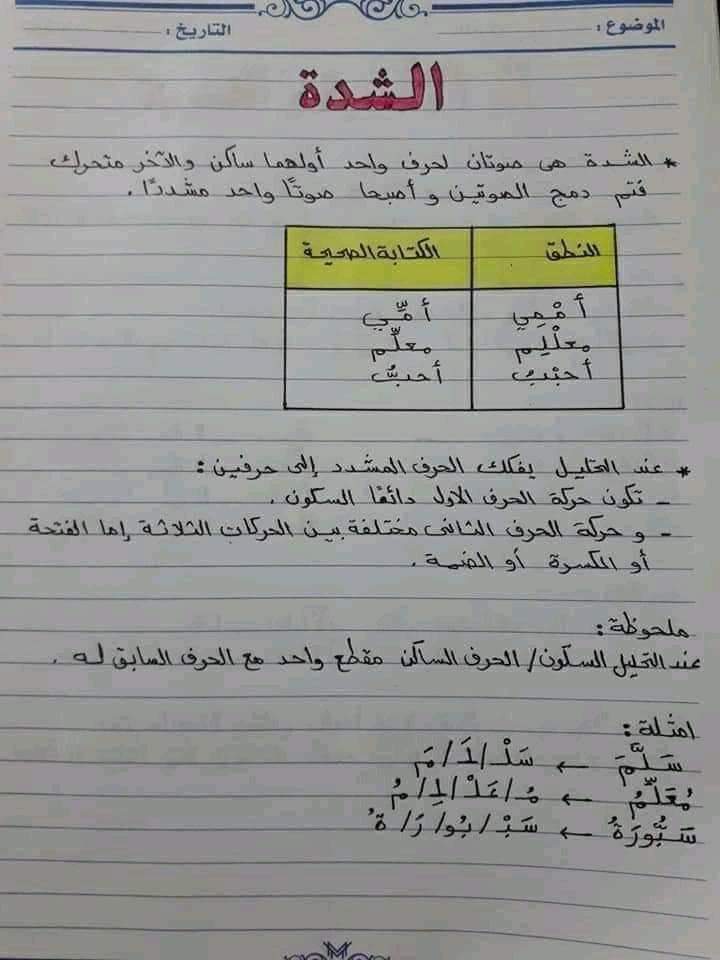 الموضوع : التاريخ :
الشدة
* الشدة هى صوتان لحرف واحد أولهما ساكن والآخر متحرك
فتم دمج الصوتين و أصبحا صوتًا واحد مشددًا .
النطق الكتابة الصحيحة
أمْمِي أمِّي
معلْلِم معلِّم
أحبْبُ أحبُّ
* عند التحليل يفكك الحرف المشدد إلى حرفين :
- تكون حركة الحرف الاول دائمًا السكون .
- و حركة الحرف الثانى مختلفة بين الحركات الثلاثة إما الفتحة
أو الكسرة أو الضمة .
ملحوظة :
عند التحليل السكون / الحرف الساكن مقطع واحد مع الحرف السابق له .
امثلة :
سَلَّمَ ← سَلْ / لَ / مَ
مُعَلِّمُ ← مُ / عَلْ / لِ / مُ
سَبُّورَةُ ← سَبْ / بُو / رَ / ةُ